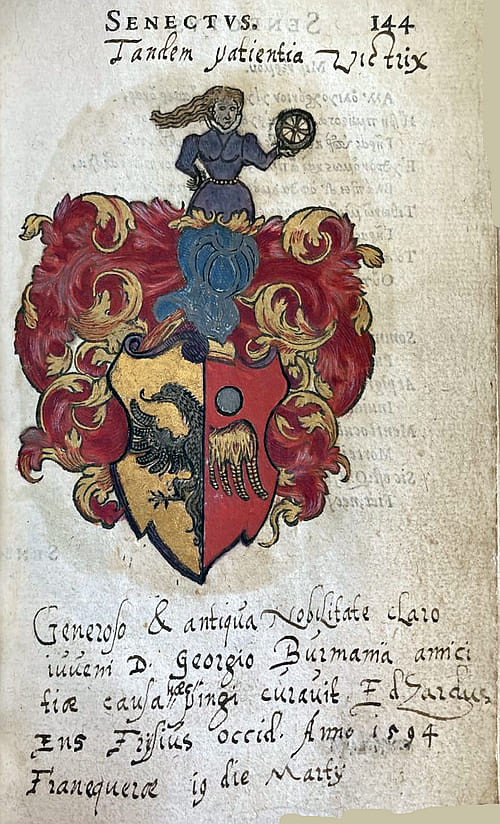 SENECTVS. 144
Tandem patientia Victrix
Generoso & antiqua Nobilitate claro
iuveni D. Georgio Burmania amici
tiæ causa hæc pingi curavit Edzardus
Ens Frysius occid. Anno 1594
Franequeræ 19 die Martÿ